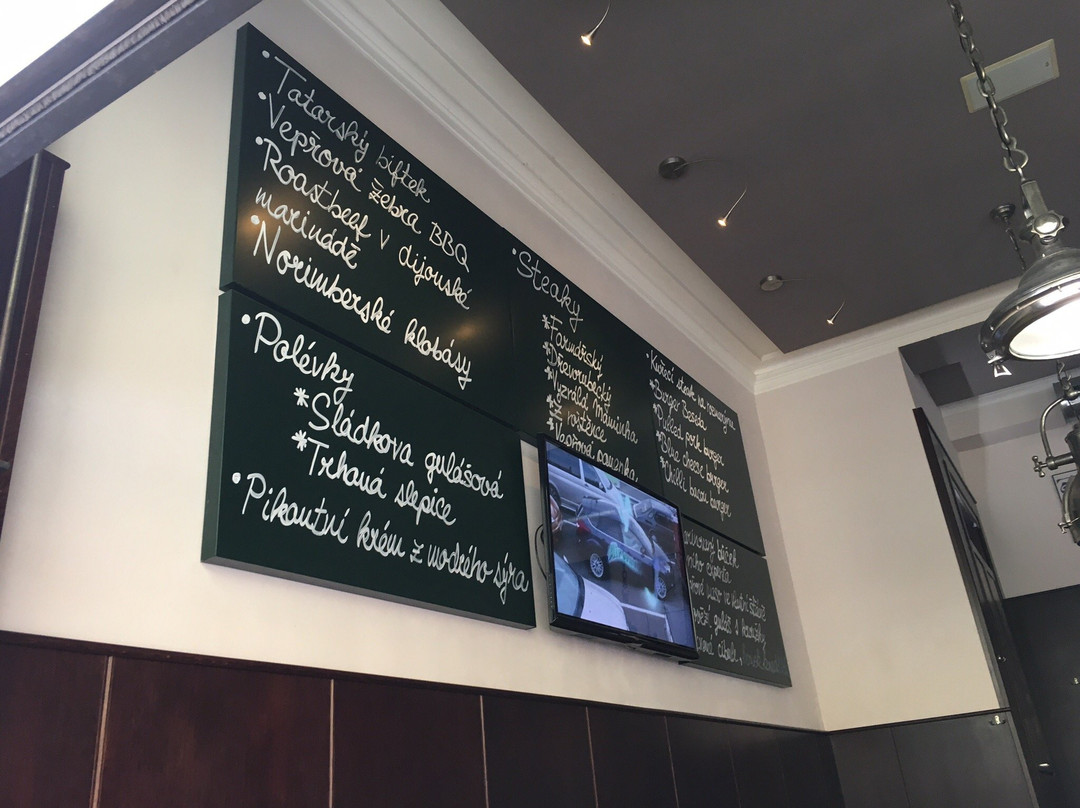 • Tatarský biftek
• Vepřová žebra BBQ
• Roastbeef v dijonské
marinádě
• Norimberské klobásy
• Polévky
* Sládkova gulášová
* Trhaná slepice
• Pikantní krém z modrého sýra
• Steaky
* Farmářský
* Dřevorubecký
* Vyzrálá
* Z roštěnce
* Vepřová panenka
• Kuřecí steak na rozmarýnu
• Burger Beseda
• Pulled pork burger
• Blue cheese burger
• Chilli bacon burger
guláš s